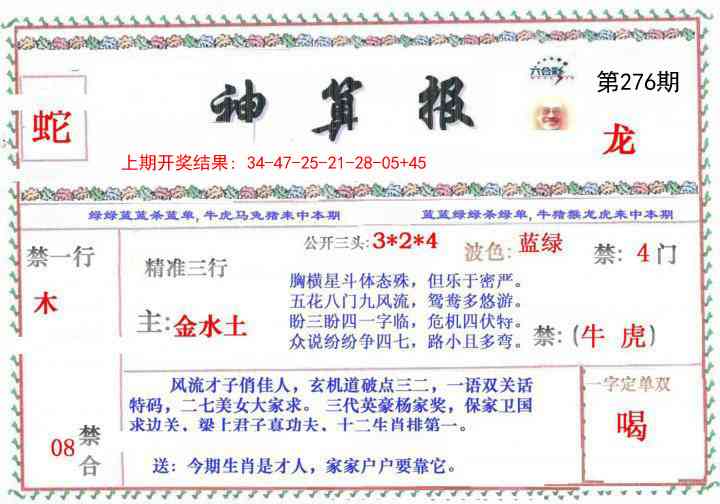 六合彩
第276期
神算报
蛇
龙
上期开奖结果: 34-47-25-21-28-05+45
绿绿蓝蓝杀蓝单,牛虎马兔猪来中本期
蓝蓝绿绿杀绿单,牛猪猴龙虎来中本期
禁一行
木
精准三行
主:金水土
公开三头:3*2*4
波色:蓝绿
禁: 4门
胸横星斗体态殊，但乐于密严。
五花八门九风流，鸳鸯多悠游。
盼三盼四一字临，危机四伏特。
众说纷纷争四七，路小且多弯。
禁:(牛 虎)
08禁合
风流才子俏佳人，玄机道破点三二，一语双关话
特码，二七美女大家求。 三代英豪杨家奖，保家卫国
求边关，梁上君子真功夫，十二生肖排第一。
送：今期生肖是才人，家家户户要靠它。
一字定单双
喝